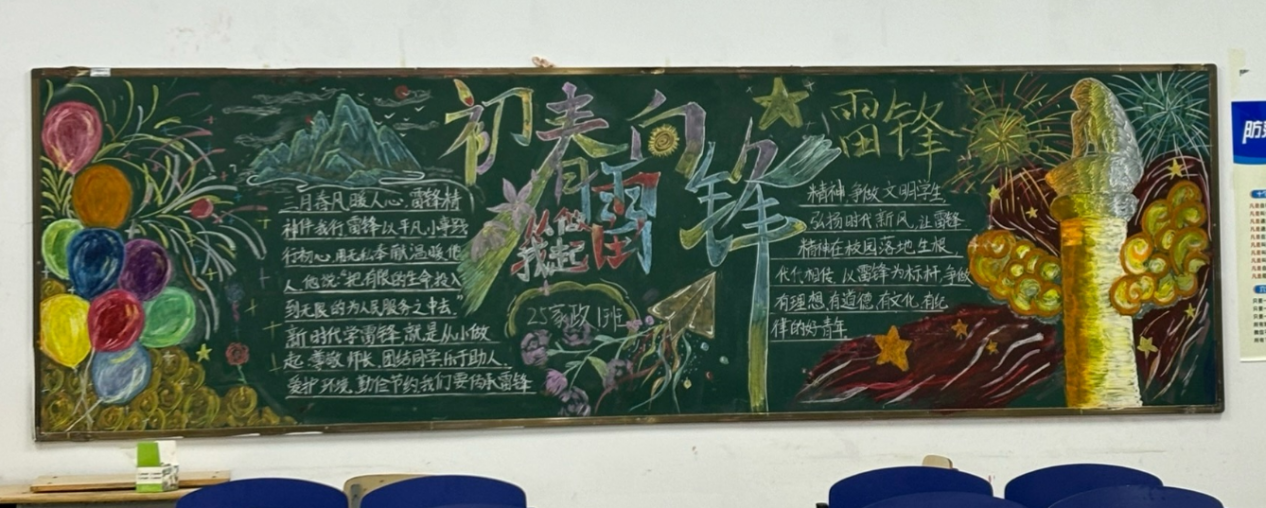 初春向锋
雷锋
雨
从做
我起
25家政1班
三月春风暖人心,雷锋精
神伴我行雷锋以平凡小事践
行初心,用无私奉献温暖他
人他说:"把有限的生命投入
到无限的为人民服务之中去"
新时代学雷锋,就是从小做
起尊敬师长,团结同学乐于助人
爱护环境,勤俭节约我们要传承雷锋
精神,争做文明学生
弘扬时代新风,让雷锋
精神在校园落地生根
代代相传,以雷锋为标杆,争做
有理想有道德,有文化,有纪
律的好青年
防